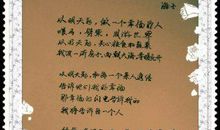 海子
从明天起，做一个幸福的人
喂马，劈柴，周游世界
从明天起，关心粮食和蔬菜
我有一所房子，面朝大海，春暖花开
从明天起，和每一个亲人通信
告诉他们我的幸福
那幸福的闪电告诉我的
我将告诉每一个人